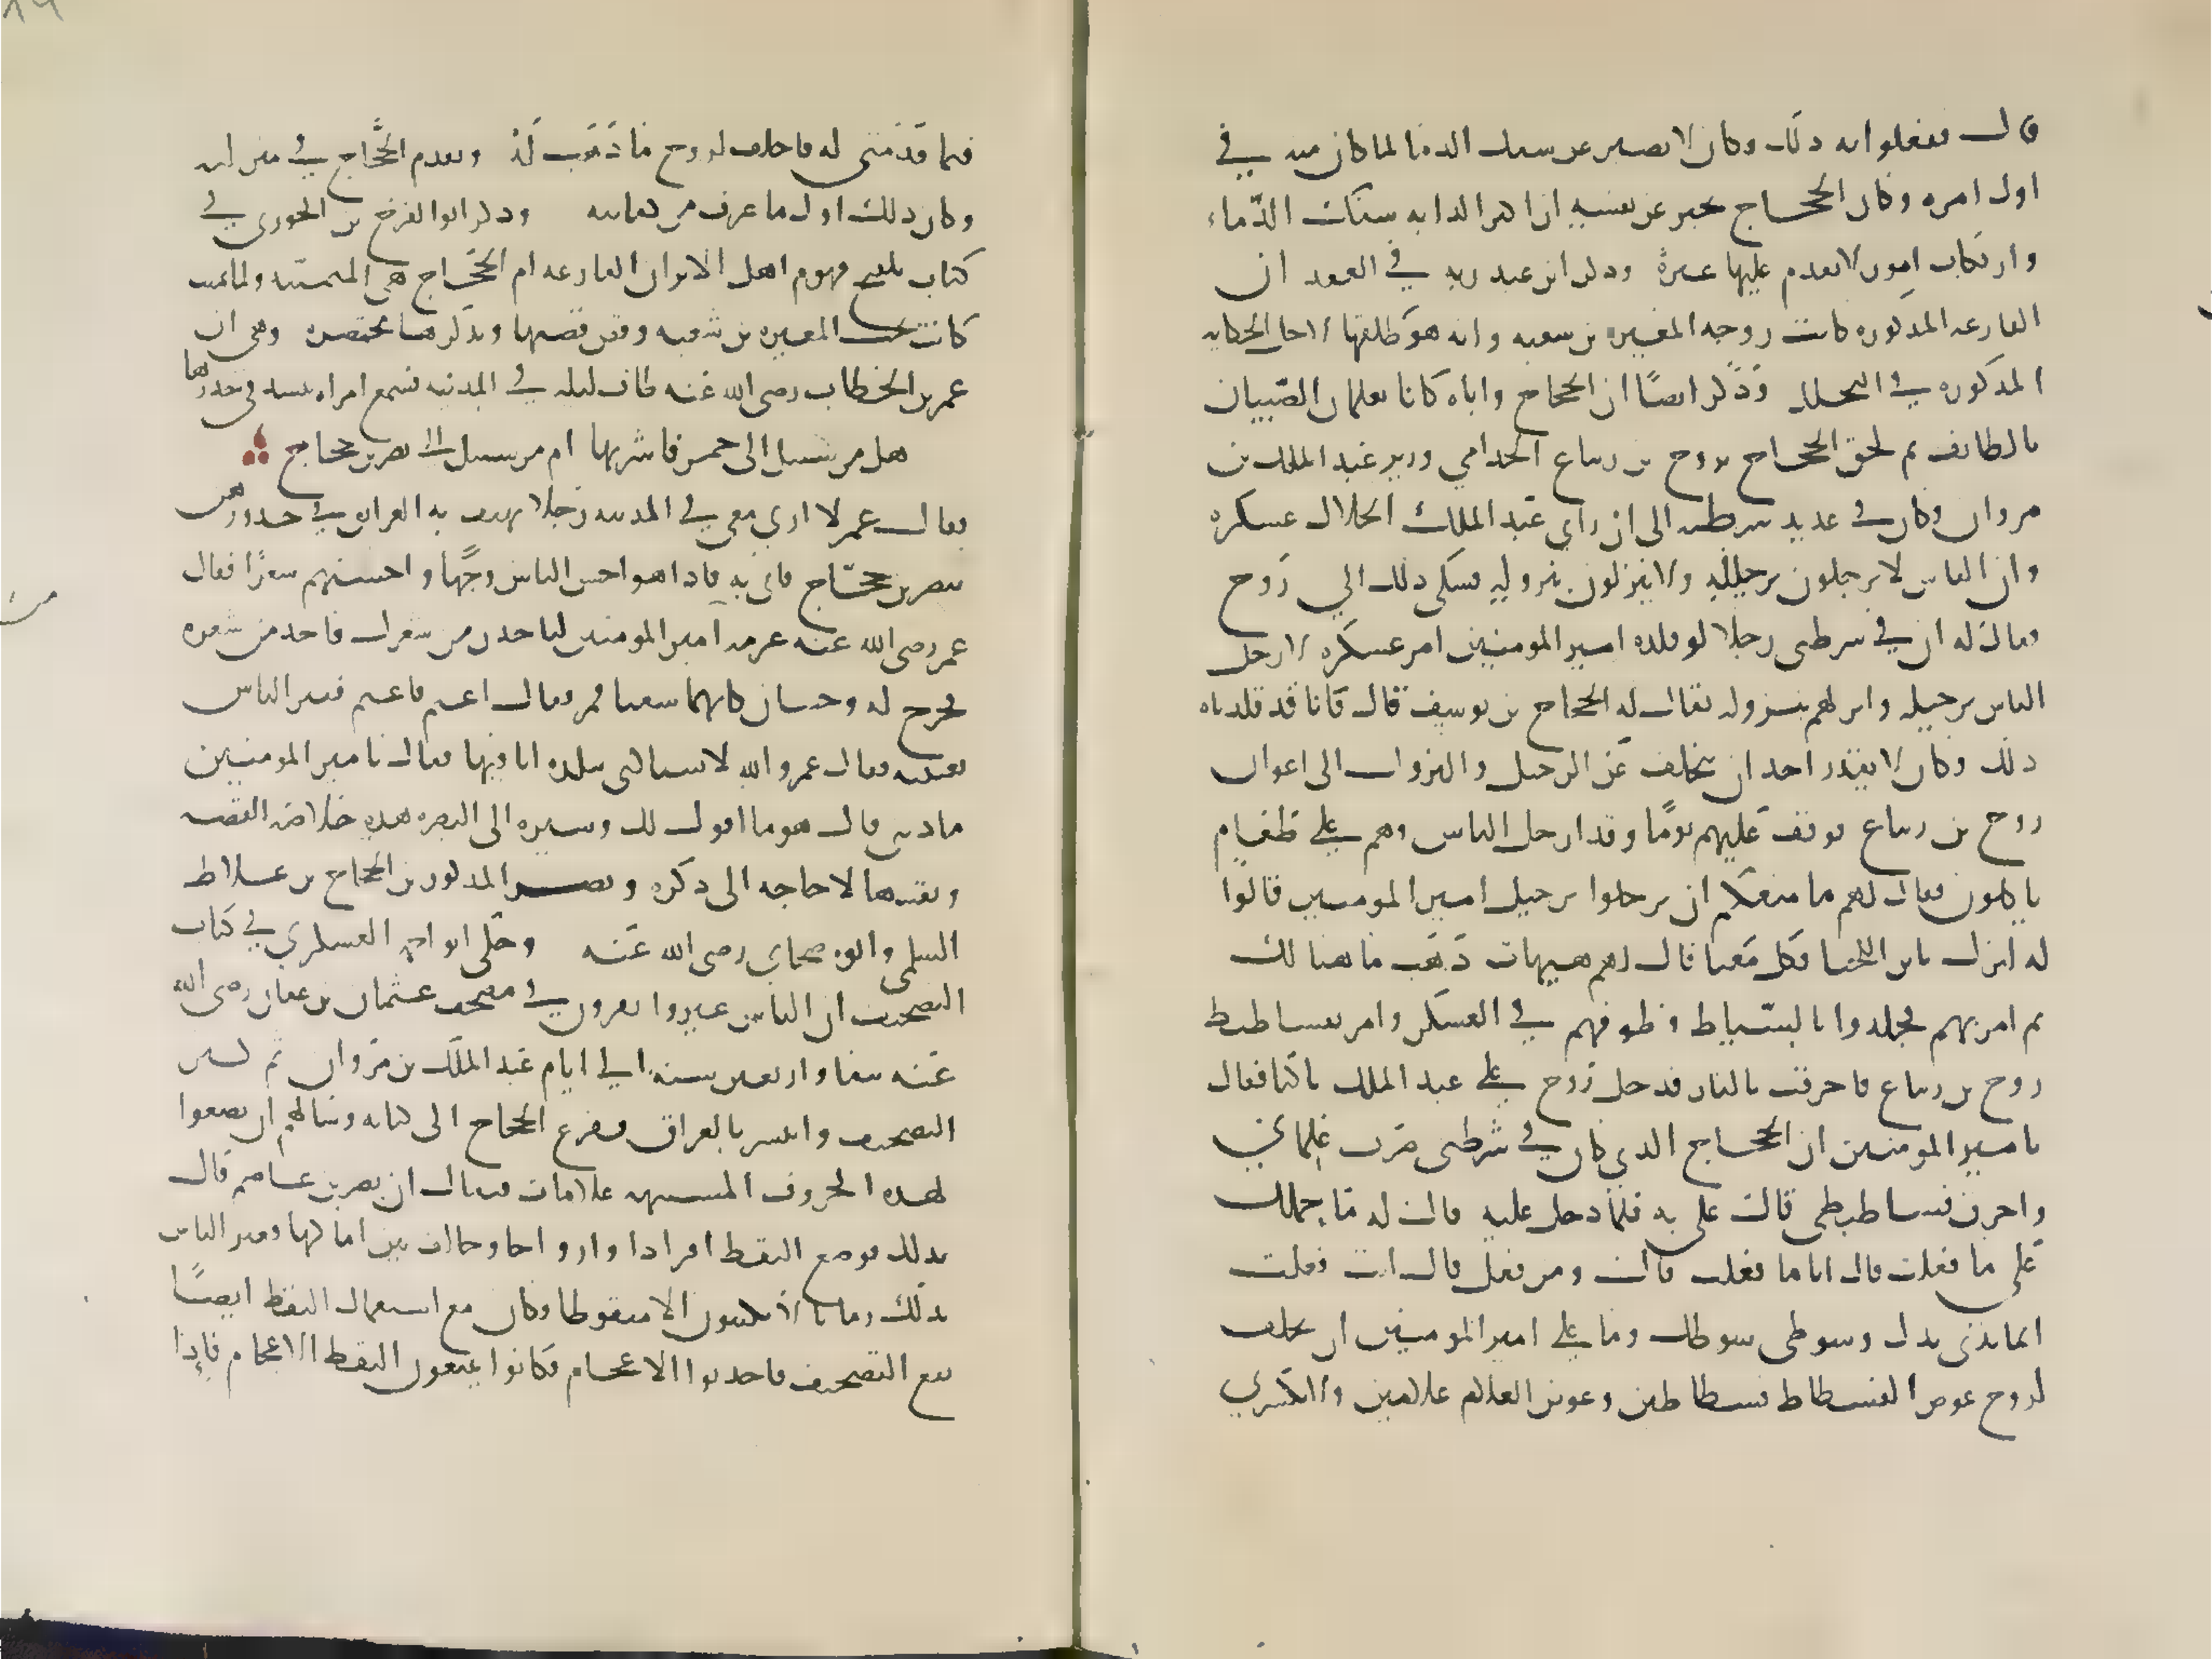 قال ففعلوا به ذلك وكان لا يصبر عن سفك الدماء لما كان منه في
اول امره وكان الحجاج يخبر عن نفسه ان اكبر لذاته سفك الدماء
وارتكاب امور لا يقدم عليها غيره وذكر ابن عبد ربه في العقد ان
الفارعه المذكوره كانت زوجه المغيره بن شعبه وانه هو طلقها لاجل الحكايه
المذكوره في التخلل وذكر ايضا ان الحجاج واباه كانا يعلمان الصبيان
بالطايف ثم لحق الحجاج بروح بن زنباع الجذامي وزير عبد الملك بن
مروان وكان في عديد شرطته الى ان راي عبد الملك انحلال عسكره
وان الناس لا يرحلون برحيله ولا ينزلون بنزوله فشكى ذلك الي روح
فقال له ان في شرطتي رجلا لو قلده امير المومنين امر عسكره لارحل
الناس برحيله وانزلهم بنزوله يقال له الحجاج بن يوسف قال فانا قد قلدناه
ذلك وكان لا يقدر احد ان يتخلف عن الرحيل والنزول الى اعوان
روح بن زنباع فوقف عليهم يوما وقد ارحل الناس وهم على طعام
ياكلون فقال لهم ما منعكم ان ترحلوا برحيل امير المومنين قالوا
له انزل يابن اللخنا فكل معنا قال لهم هيهات ذهب ما هنالك
ثم امر بهم فجلدوا بالسياط وطوفهم في العسكر وامر بفساطيط
روح بن زنباع فاحرقت بالنار فدخل روح على عبد الملك باكيا فقال
يامير المومنين ان الحجاج الذي كان في شرطتي ضرب غلماني
واحرق فساطيطي قال على به فلما دخل عليه قال له ما حملك
على ما فعلت قال انا ما فعلت قال ومن فعل قال انت فعلت
انما يدي يدك وسوطي سوطك وما على امير المومنين ان يخلف
لروح عوض الفسطاط فسطاطين وعوض الغلام غلامين ولا يكسرني
فيما قدمني له فاخلف لروح ما ذهب له وتقدم الحجاج في منزلته
وكان ذلك اول ما عرف من كفايته وذكر ابو الفرج بن الجوزي في
كتاب تلقيح فهوم اهل الاثر ان الفارعه ام الحجاج هي المتمنيه ولما تمنت
كانت تحت المغيره بن شعبه وقص قصتها ونذكرها مختصره وهي ان
عمر بن الخطاب رضى الله عنه طاف ليله في المدينه فسمع امراه تنشد في خدرها
هل من سبيل الى خمر فاشربها ام من سبيل الى نصر بن حجاج
فقال عمر لا ارى معي في المدينه رجلا تهتف به العواتق في خدورهن
بنصر بن حجاج فاتى به فاذا هو احسن الناس وجها واحسنهم شعرا فقال
عمر رضى الله عنه عزمه امير المومنين لناخذن من شعرك فاخذ من شعره
فخرج له وجنتان كانهما شقتا قمر فقال اعتم فاعتم ففتن الناس
بعينيه فقال عمر والله لا تساكني ببلده انا فيها فقال يامير المومنين
ما ذنبي قال هو ما اقول لك وسيره الى البصره هذه خلاصه القصه
وبقيتها لا حاجه الى ذكره ونصر المذكور بن الحجاج بن علاط
السلمي وابوه صحابي رضى الله عنه وحكى ابو احمد العسكري في كتاب
التصحيف ان الناس غبروا يقرون في مصحف عثمان بن عفان رضى الله
عنه نيفا واربعين سنه الي ايام عبد الملك بن مروان ثم كثر
التصحيف وانتشر بالعراق ففزع الحجاج الى كتابه وسالهم ان يضعوا
لهذه الحروف المشتبهه علامات فيقال ان نصر بن عاصم قام
بذلك فوضع النقط افرادا وازواجا وخالف بين اماكنها فغبر الناس
بذلك زمانا لا يكتبون الا منقوطا وكان مع استعمال النقط ايضا
يقع التصحيف فاحدثوا الاعجام فكانوا يتبعون النقط الاعجام فاذا